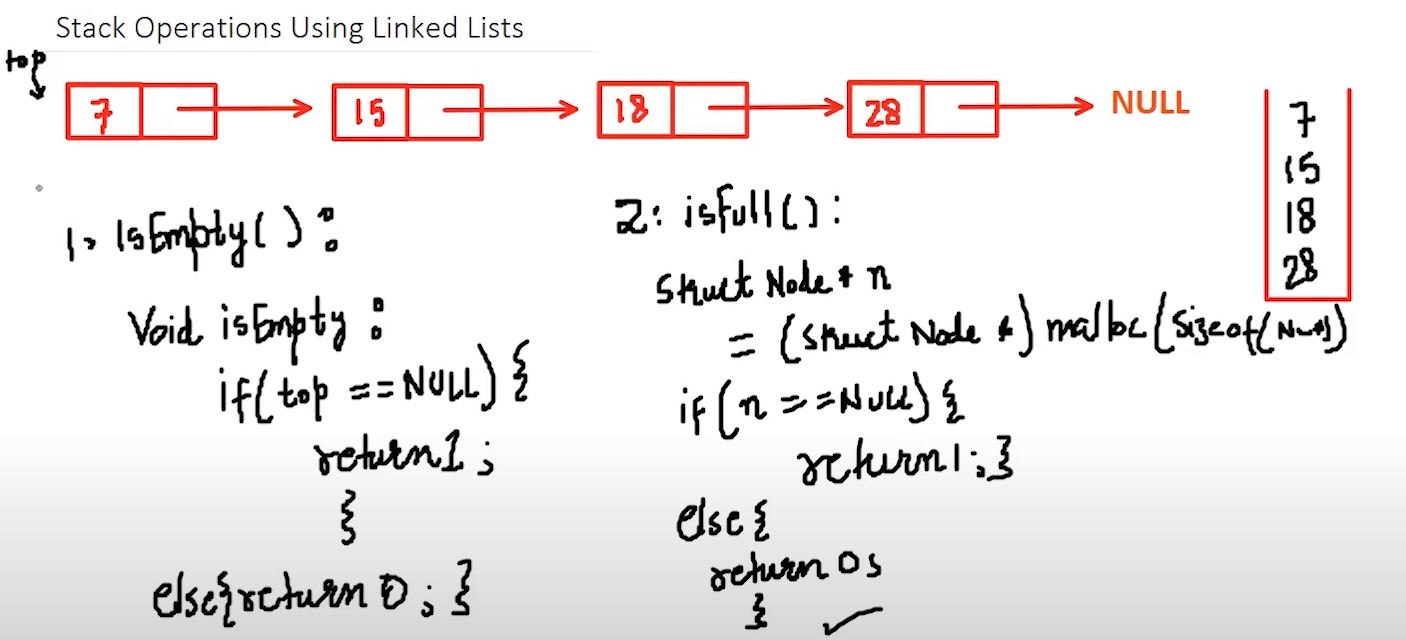 Stack Operations Using Linked Lists
top
7 15 18 28 NULL
7
15
18
28
1. IsEmpty() :
Void isEmpty :
if(top ==NULL) {
return 1 ;
}
else{return 0 ; }
2: isfull() :
Struct Node * n
= (Struct Node *) malloc (Sizeof(
if (n ==NULL) {
return 1 ; }
else {
return 0;
}